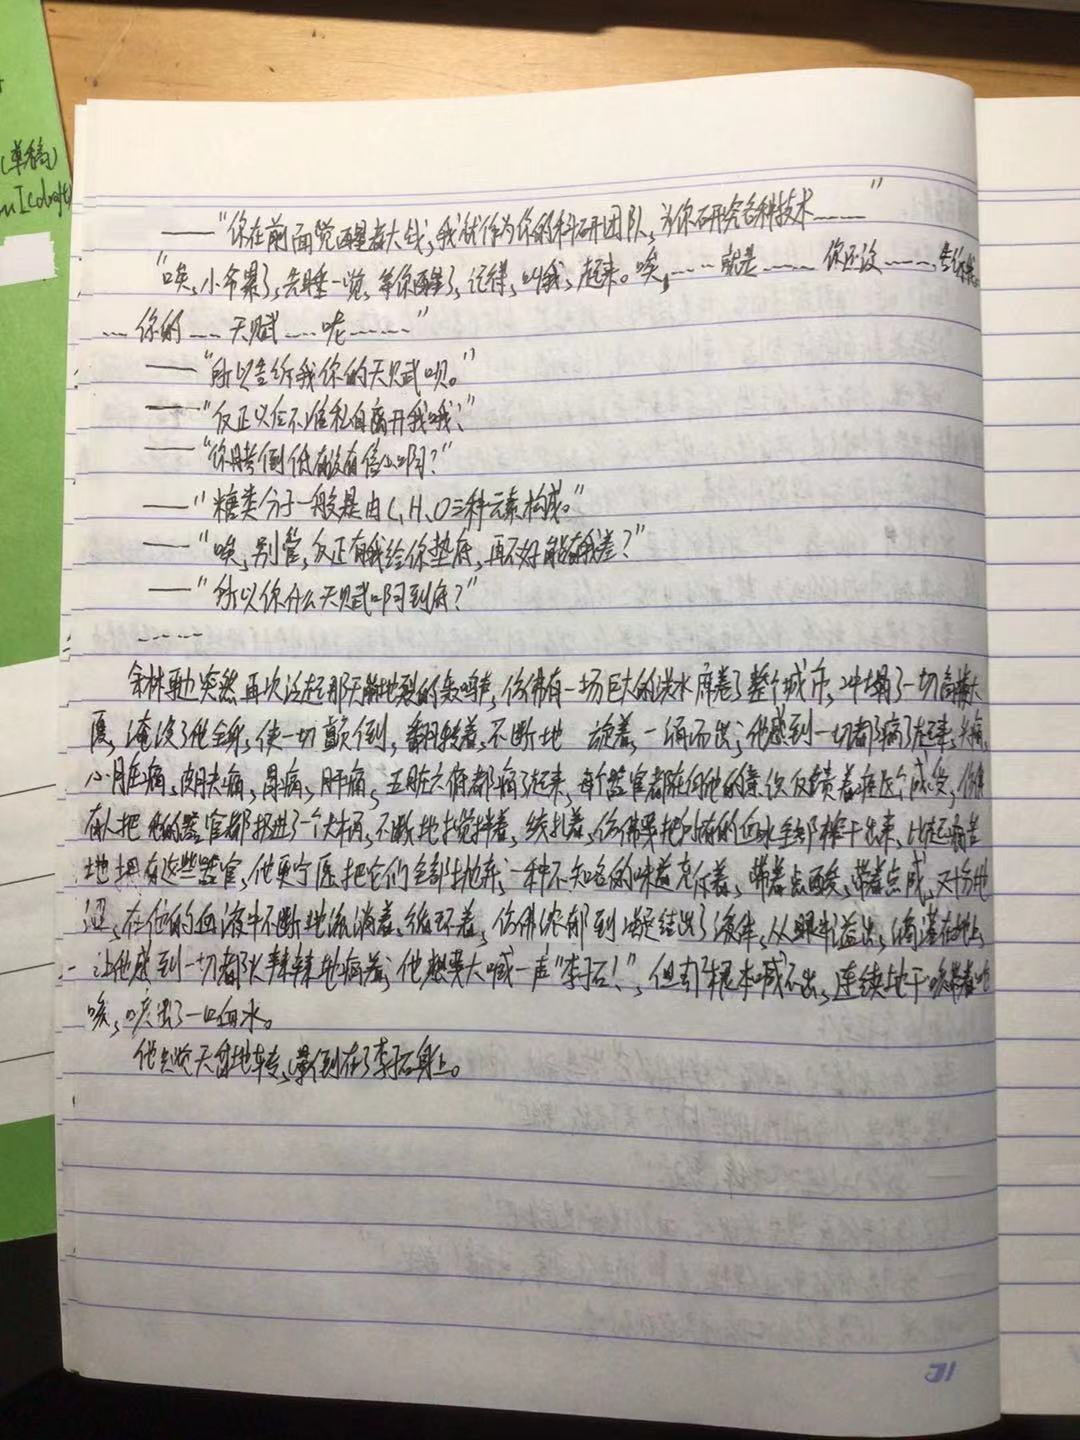 (草稿)
——“你在前面觉醒发大钱，我就作为你的科研团队，为你研究各种技术……”
“唉，小爷累了，去睡一觉，等你醒了，记得，叫我，起来。唉，……就是……你还没……告诉我
……你的……天赋……呢……”
——“所以告诉我你的天赋呗。”
——“反正以后不准私自离开我哦？”
——“你月考到底有没有信心啊？”
——“糖类分子一般是由C、H、O三种元素构成。”
——“唉，别管，反正有我给你垫底，再不好能有我差？”
——“所以你什么天赋啊到底？”
……
余林耳边突然再次泛起那天崩地裂的轰鸣声，仿佛有一场巨大的洪水席卷了整个城市，冲塌了一切高楼大
厦，淹没了他全身，使一切颠倒，翻转着，不断地 旋着，一涌而出；他感到一切都痛了起来，头痛，
心脏痛，皮肤痛，胃痛，肝痛，五脏六腑都痛了起来，每个器官都在向他的意识反馈着难以承受，仿佛
有人把他的器官都扔进了一个大桶，不断地搅拌着，绕扎着，仿佛要把所有的血水全部榨干出来，比起痛苦
地拥有这些器官，他更宁愿把它们全部抛弃；一种不知名的味道充斥着，带着点酸，带着点咸，又十分地
涩，在他的血液中不断地流淌着，循环着，仿佛浓郁到凝结出了液体，从眼中溢出，滴落在地上，
让他感到一切都火辣辣地痛着；他想要大喊一声“李石！”，但却根本喊不出，连续地干咳带着
咳，咳出了一口血水。
他只觉天旋地转，晕倒在了李石身上。
31